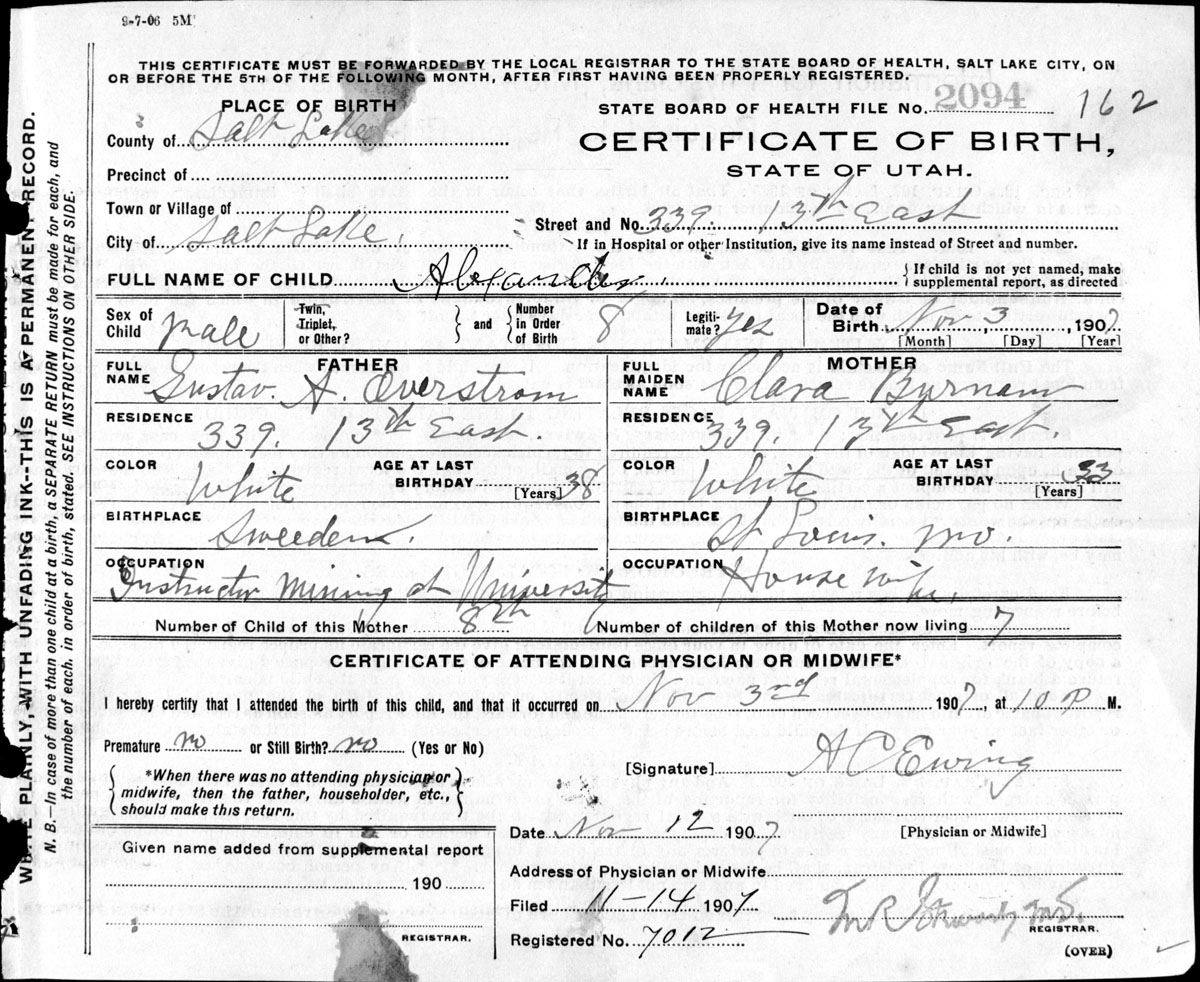 9-7-06 5M
THIS CERTIFICATE MUST BE FORWARDED BY THE LOCAL REGISTRAR TO THE STATE BOARD OF HEALTH, SALT LAKE CITY, ON
OR BEFORE THE 5TH OF THE FOLLOWING MONTH, AFTER FIRST HAVING BEEN PROPERLY REGISTERED.
PLACE OF BIRTH
County of Salt Lake
Precinct of
Town or Village of
City of Salt Lake.
STATE BOARD OF HEALTH FILE No. 2094 162
CERTIFICATE OF BIRTH,
STATE OF UTAH.
Street and No. 339. 13th East
If in Hospital or other Institution, give its name instead of Street and number.
FULL NAME OF CHILD Alexander
If child is not yet named, make
supplemental report, as directed
Sex of Child male
Twin, Triplet, or Other?
and
Number in Order of Birth 8
Legiti-mate? Yes
Date of Birth Nov 3, 1907
[Month] [Day] [Year]
FATHER
FULL NAME Gustav. A. Overstrom
RESIDENCE 339. 13th East.
COLOR White
AGE AT LAST BIRTHDAY 38
[Years]
BIRTHPLACE Sweeden.
OCCUPATION Instructor Mining at University
MOTHER
FULL MAIDEN NAME Clara Byrnam
RESIDENCE 339. 13th East.
COLOR White
AGE AT LAST BIRTHDAY 33
[Years]
BIRTHPLACE St Louis. Mo.
OCCUPATION House wife.
Number of Child of this Mother 8th
Number of children of this Mother now living 7
CERTIFICATE OF ATTENDING PHYSICIAN OR MIDWIFE*
I hereby certify that I attended the birth of this child, and that it occurred on Nov 3rd 1907, at 10 P M.
Premature no or Still Birth? no (Yes or No)
*When there was no attending physician or
midwife, then the father, householder, etc.,
should make this return.
[Signature] A C Ewing
[Physician or Midwife]
Given name added from supplemental report
190
REGISTRAR.
Date Nov 12 1907
Address of Physician or Midwife
Filed 11-14 1907
Registered No. 7012
REGISTRAR.
(OVER)
WRITE PLAINLY, WITH UNFADING INK--THIS IS A PERMANENT RECORD.
N. B.—In case of more than one child at a birth, a SEPARATE RETURN must be made for each, and
the number of each, in order of birth, stated. SEE INSTRUCTIONS ON OTHER SIDE.